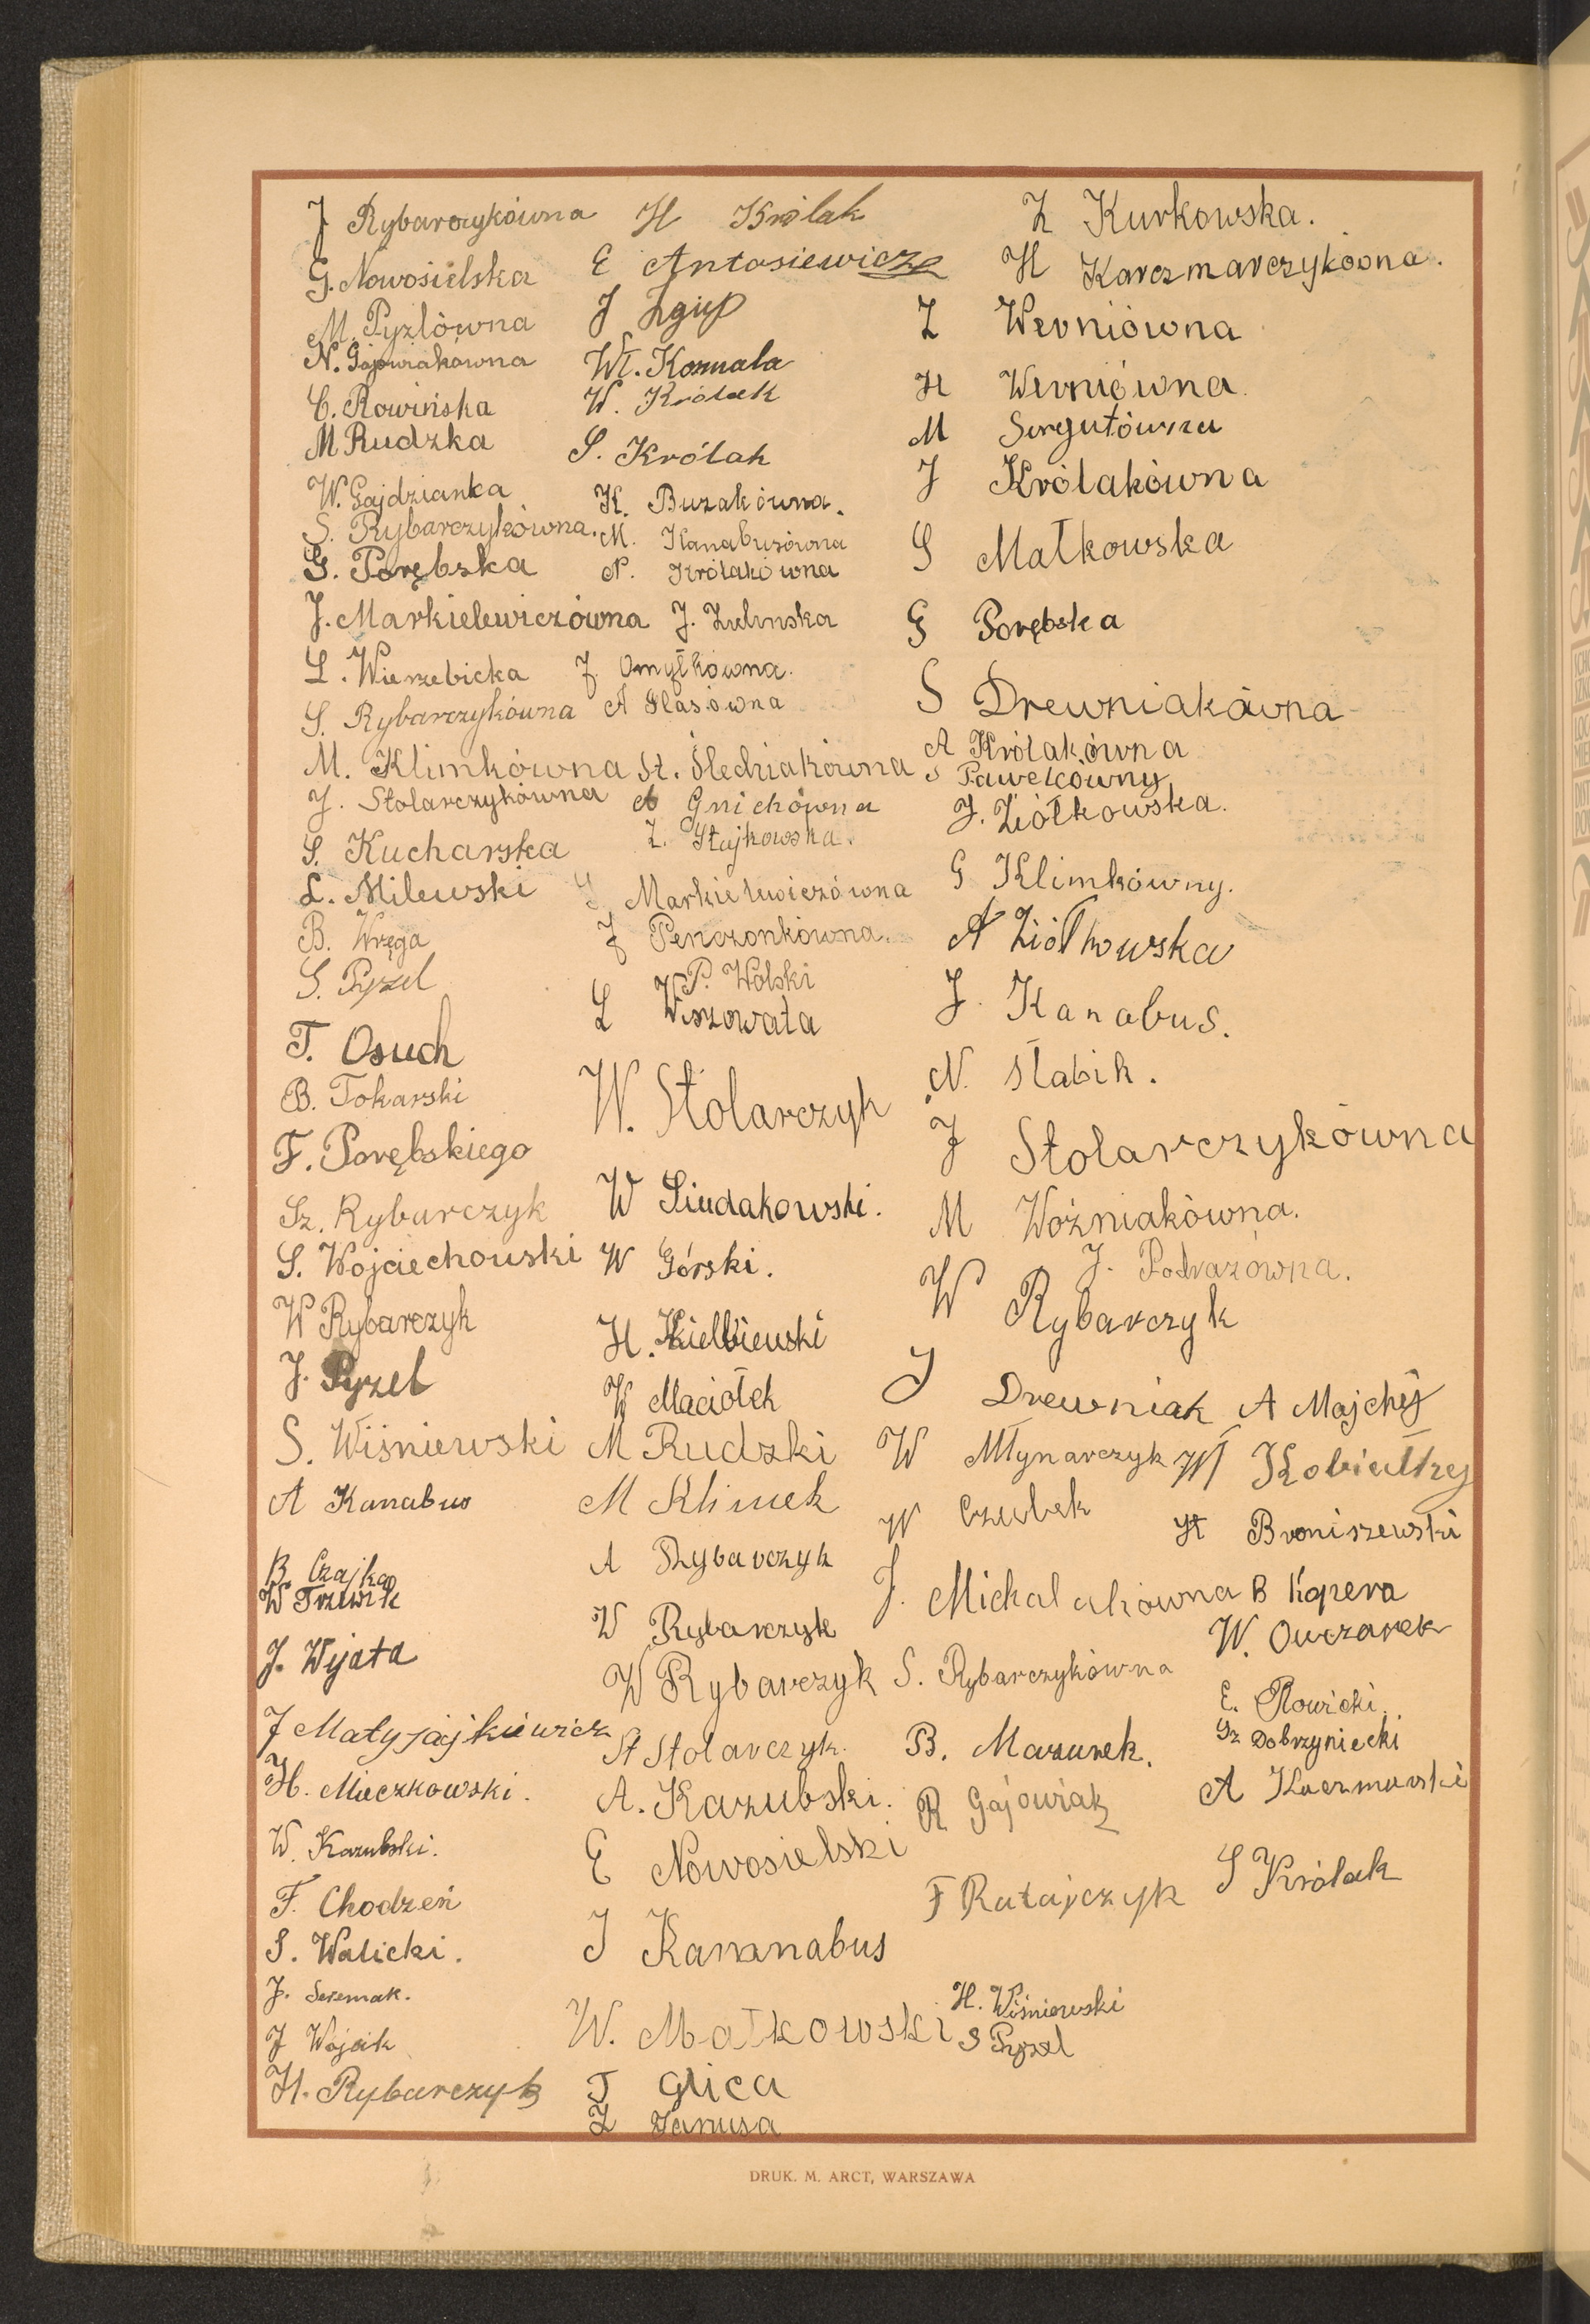 J Rybarczykówna
G. Nowosielska
M. Pyzlówna
N. Gajowiakówna
C. Rowińska
M Rudzka
W. Gajdzianka
S. Rybarczykówna.
G. Porębska
J. Markielewiczówna
L. Wierzebicka
S. Rybarczykówna
M. Klimkówna
J. Stolarczykówna
S. Kucharska
L. Milewski
B. Wręga
S. Pyzel
T. Osuch
B. Tokarski
F. Porębskiego
Sz. Rybarczyk
S. Wojciechowski
W Rybarczyk
J. Pyzel
S. Wiśniewski
A Kanabus
B Czajka
W Trzewik
J. Wyjata
J Matyjajkiewicz
H. Mieczkowski.
W. Kazubski.
F. Chodzeń
S. Walicki.
J. Seremak.
J Wójcik
H. Rybarczyk
H Królak
E Antosiewicza
J Zgiep
Wł. Kosmala
W. Królak
S. Królak
K. Buzakówna.
M. Kanabusówna
N. Królakówna
J. Zielinska
J. Omyłkówna.
A Glasówna
St. Śledziakówna
A Gnichówna
Z. Stajkowska.
S Markielewiczówna
J Penczonkówna.
P. Wolski
L Wiszowata
W. Stolarczyk
W Siudakowski.
W Górski.
H. Kielbiewski
W Maciołek
M Rudzki
M Klimek
A Rybarczyk
W Rybarczyk
W Rybarczyk
St Stolarczyk.
A. Kazubski.
E Nowosielski
J Kannabus
W. Małkowski
T Glica
Z Janusa
Z Kurkowska.
H Karczmarczykówna.
Z Werniówna
H Werniówna.
M Sergutówna
J Królakówna
S Małkowska
G Porębska
S Drewniakówna
A Królakówna
S Pawelcówny
J. Ziółkowska.
G Klimkówny.
A Ziółkowska
J. Kanabus.
N. Słabik.
J Stolarczykówna
M Woźniakówna.
J. Podrazówna.
W Rybarczyk
J Drewniak A Majchej
W Młynarczyk Wł Kobiałkej
W Czubek St Broniszewski
J. Michalakówna B Kopera
W. Owczarek
S. Rybarczykówna
E. Rowicki.
B. Mazurek. Sz Dobrzyniecki
R Gajowiak A Kaczmarski
F Ratajczyk S Królak
H. Wiśniewski
S Pyzel
DRUK. M. ARCT, WARSZAWA